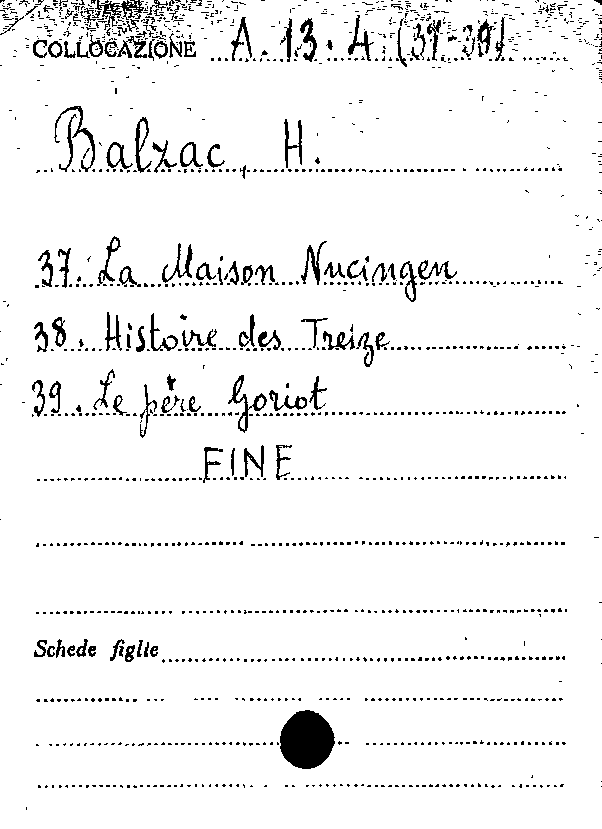 COLLOCAZIONE A. 13. 4. (37-39)
Balzac, H.
37. La Maison Nucingen
38. Histoire des Treize
39. Le père Goriot
FINE
Schede figlie